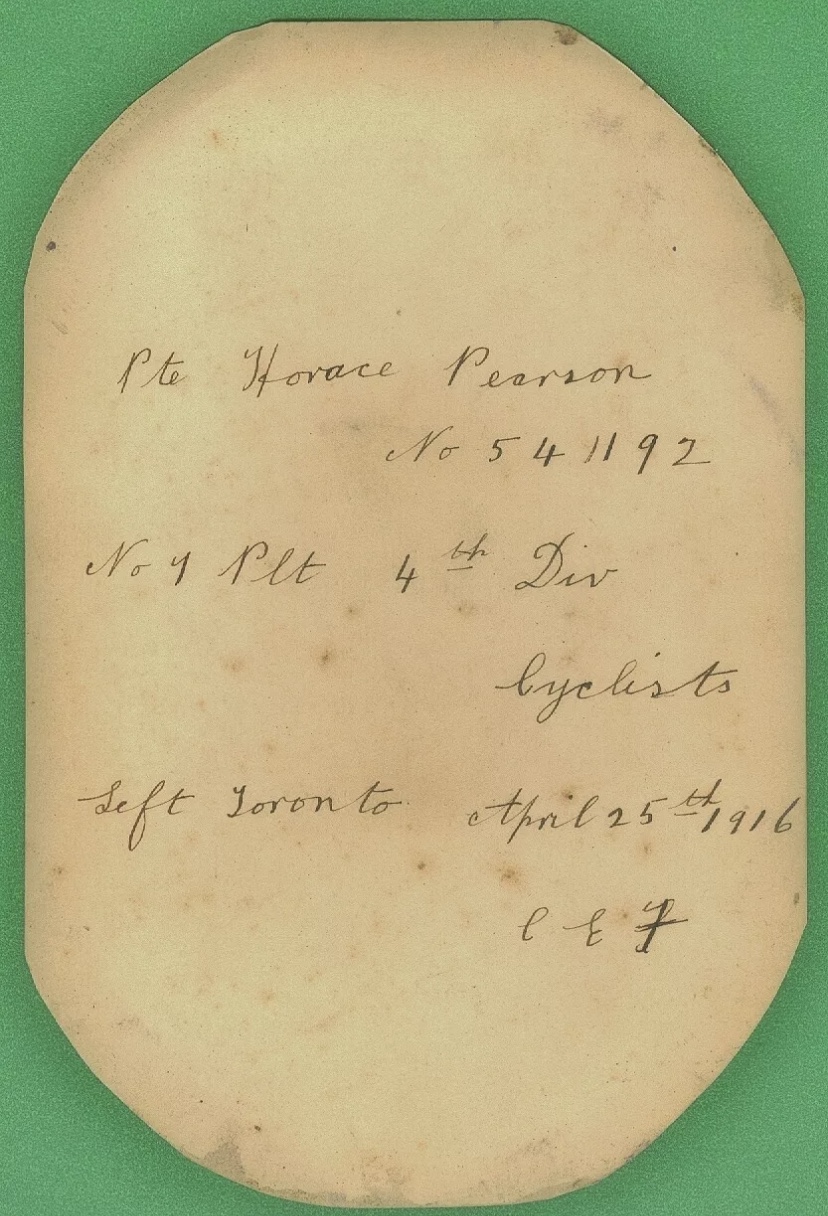 Pte Horace Pearson
No 541192
No 1 Plt 4th Div
Cyclists
Left Toronto April 25th 1916
C E F